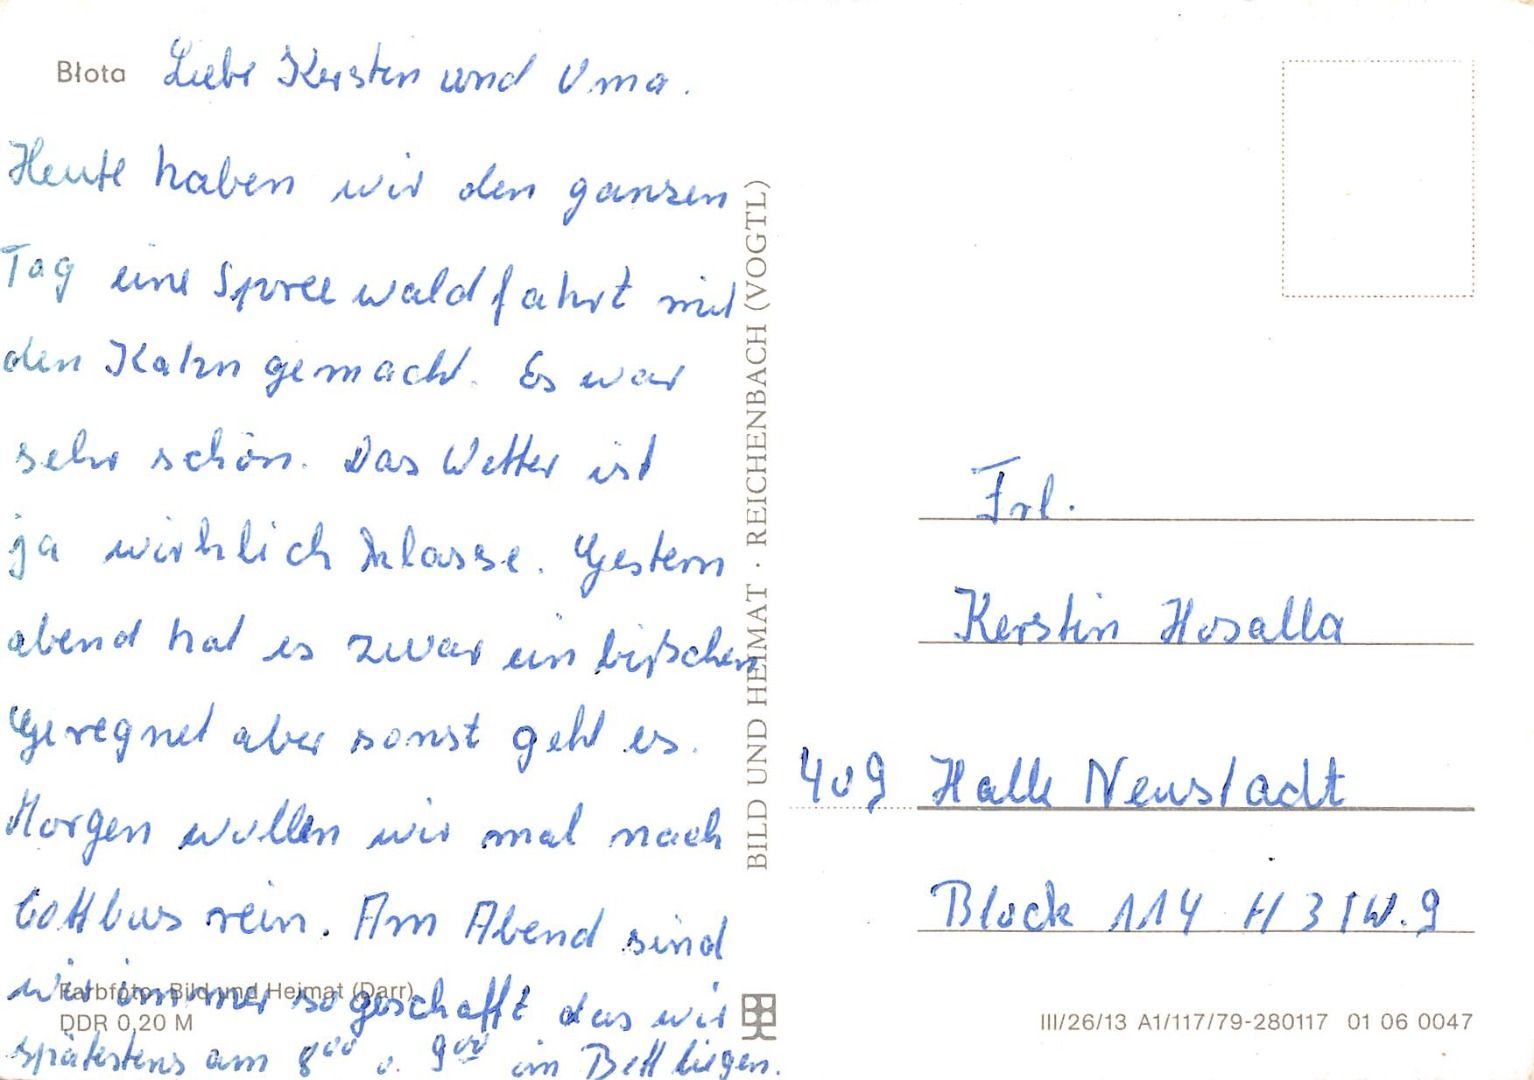 Błota
Liebe Kerstin und Oma.
Heute haben wir den ganzen
Tag eine Spreewaldfahrt mit
den Kahn gemacht. Es war
sehr schön. Das Wetter ist
ja wirklich klasse. Gestern
abend hat es zwar ein bißchen
Geregnet aber sonst geht es.
Morgen wollen wir mal nach
Cottbus rein. Am Abend sind
wir immer so geschafft das wir
spätestens am 8⁰⁰ o. 9⁰⁰ im Bett liegen.
Farbfoto: Bild und Heimat (Darr)
DDR 0,20 M
BILD UND HEIMAT · REICHENBACH (VOGTL)
Frl.
Kerstin Hosalla
409 Halle Neustadt
Block 114 H 3 / W. 9
III/26/13 A1/117/79-280117 01 06 0047